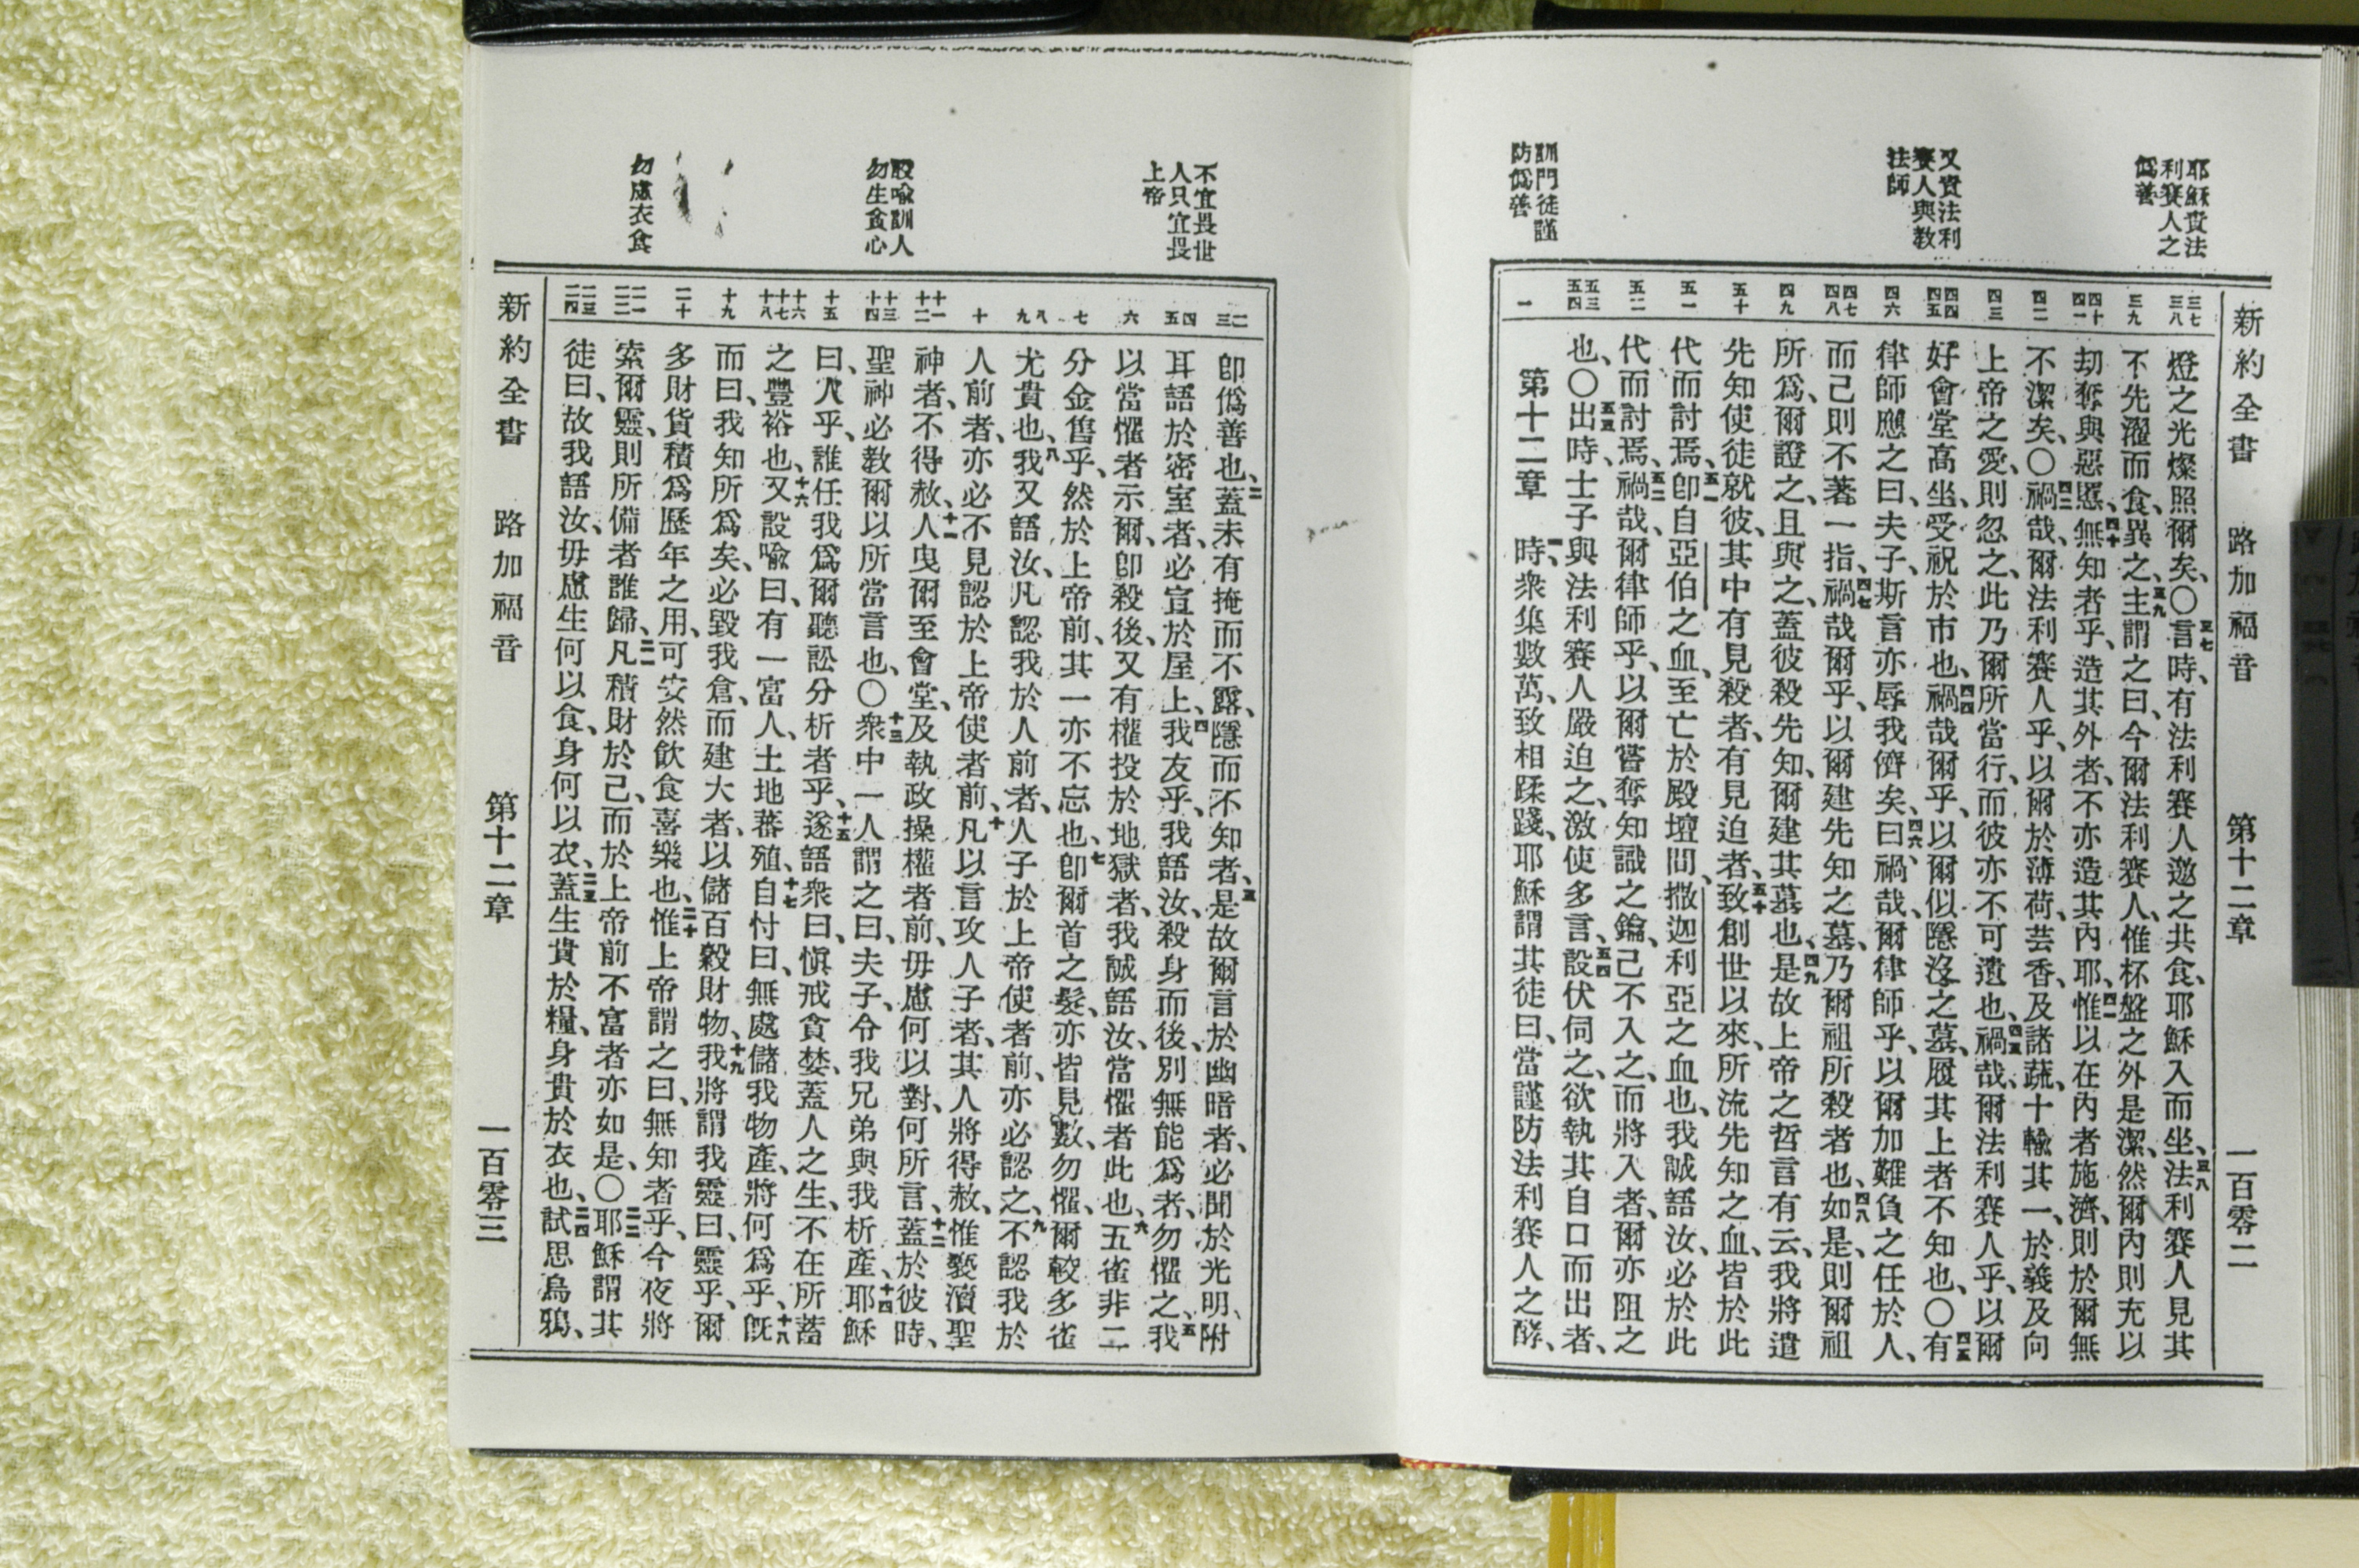 耶穌責法
利賽人之
僞善
又責法利
賽人與教
法師
訓門徒謹
防僞善
新約全書 路加福音 第十二章 一百零二
三七
三八
三九
四十
四一
四二
四三
四四
四五
四六
四七
四八
四九
五十
五一
五二
五三
五四
一
燈之光燦照爾矣、〇三七言時、有法利賽人邀之共食、耶穌入而坐、三八法利賽人見其
不先濯而食、異之、三九主謂之曰、今爾法利賽人、惟杯盤之外是潔、然爾內則充以
刧奪與惡慝、四十無知者乎、造其外者、不亦造其內耶、四一惟以在內者施濟、則於爾無
不潔矣、〇四二禍哉、爾法利賽人乎、以爾於薄荷、芸香、及諸蔬、十輸其一、於義及向
上帝之愛、則忽之、此乃爾所當行、而彼亦不可遺也、四三禍哉、爾法利賽人乎、以爾
好會堂高坐、受祝於市也、四四禍哉爾乎、以爾似隱沒之墓、履其上者不知也、〇四五有
律師應之曰、夫子、斯言亦辱我儕矣、四六曰、禍哉、爾律師乎、以爾加難負之任於人、
而己則不著一指、四七禍哉爾乎、以爾建先知之墓、乃爾祖所殺者也、四八如是、則爾祖
所爲、爾證之、且與之、蓋彼殺先知、爾建其墓也、四九是故上帝之哲言有云、我將遣
先知使徒就彼、其中有見殺者、有見迫者、五十致創世以來、所流先知之血、皆於此
代而討焉、五一卽自亞伯之血、至亡於殿壇間、撒迦利亞之血也、我誠語汝、必於此
代而討焉、五二禍哉、爾律師乎、以爾嘗奪知識之鑰、己不入之、而將入者、爾亦阻之
也、〇五三出時、士子與法利賽人嚴迫之、激使多言、五四設伏伺之、欲執其自口而出者、
第十二章 一時、衆集數萬、致相蹂踐、耶穌謂其徒曰、當謹防法利賽人之酵、
不宜畏世
人只宜畏
上帝
設喩訓人
勿生貪心
勿慮衣食
二
三
四
五
六
七
八
九
十
十一
十二
十三
十四
十五
十六
十七
十八
十九
二十
二一
二二
二三
二四
卽僞善也、二蓋未有掩而不露、隱而不知者、三是故爾言於幽暗者、必聞於光明、附
耳語於密室者、必宣於屋上、四我友乎、我語汝、殺身而後、別無能爲者、勿懼之、五我
以當懼者示爾、卽殺後、又有權投於地獄者、我誠語汝、當懼者此也、六五雀非二
分金售乎、然於上帝前、其一亦不忘也、七卽爾首之髮、亦皆見數、勿懼、爾較多雀
尤貴也、八我又語汝、凡認我於人前者、人子於上帝使者前、亦必認之、九不認我於
人前者、亦必不見認於上帝使者前、十凡以言攻人子者、其人將得赦、惟褻瀆聖
神者、不得赦、十一人曳爾至會堂、及執政操權者前、毋慮何以對、何所言、十二蓋於彼時、
聖神必教爾以所當言也、〇十三衆中一人謂之曰、夫子、令我兄弟與我析產、十四耶穌
曰、人乎、誰任我爲爾聽訟分析者乎、十五遂語衆曰、愼戒貪婪、蓋人之生、不在所蓄
之豐裕也、十六又設喩曰、有一富人、土地蕃殖、十七自忖曰、無處儲我物產、將何爲乎、十八旣
而曰、我知所爲矣、必毀我倉、而建大者、以儲百穀財物、十九我將謂我靈曰、靈乎、爾
多財貨積爲歷年之用、可安然飲食喜樂也、二十惟上帝謂之曰、無知者乎、今夜將
索爾靈、則所備者誰歸、二一凡積財於己、而於上帝前不富者亦如是、〇二二耶穌謂其
徒曰、故我語汝、毋慮生何以食、身何以衣、二三蓋生貴於糧、身貴於衣也、二四試思烏鴉、
新約全書 路加福音 第十二章 一百零三